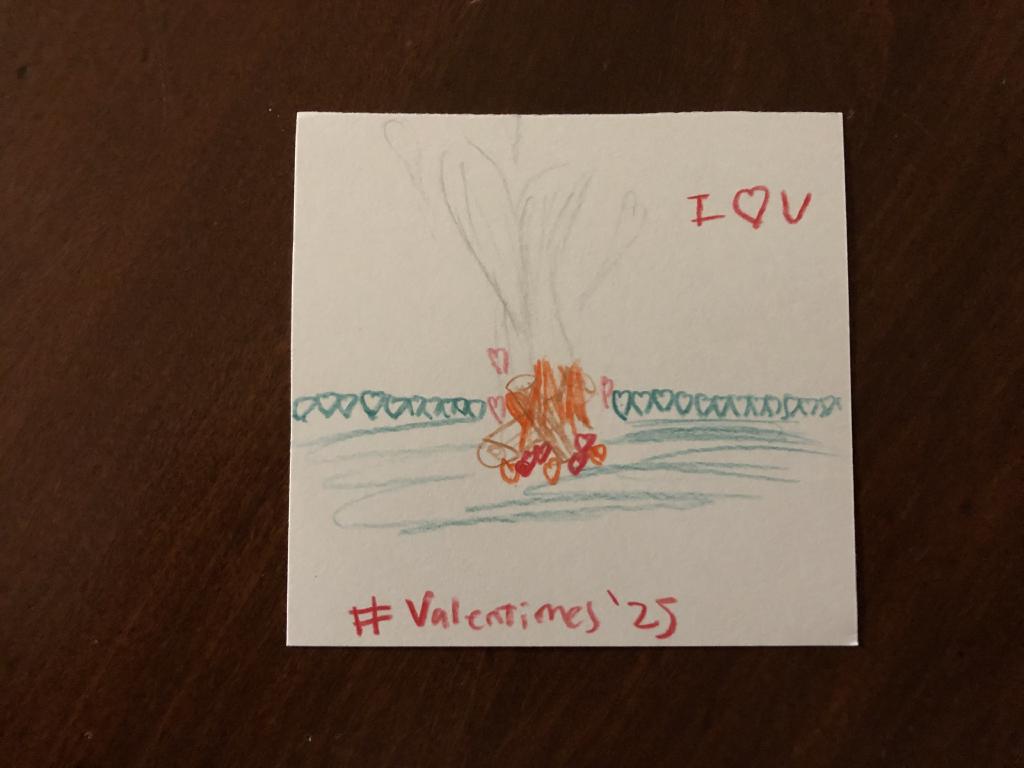 I ♡ U
# Valentimes '25